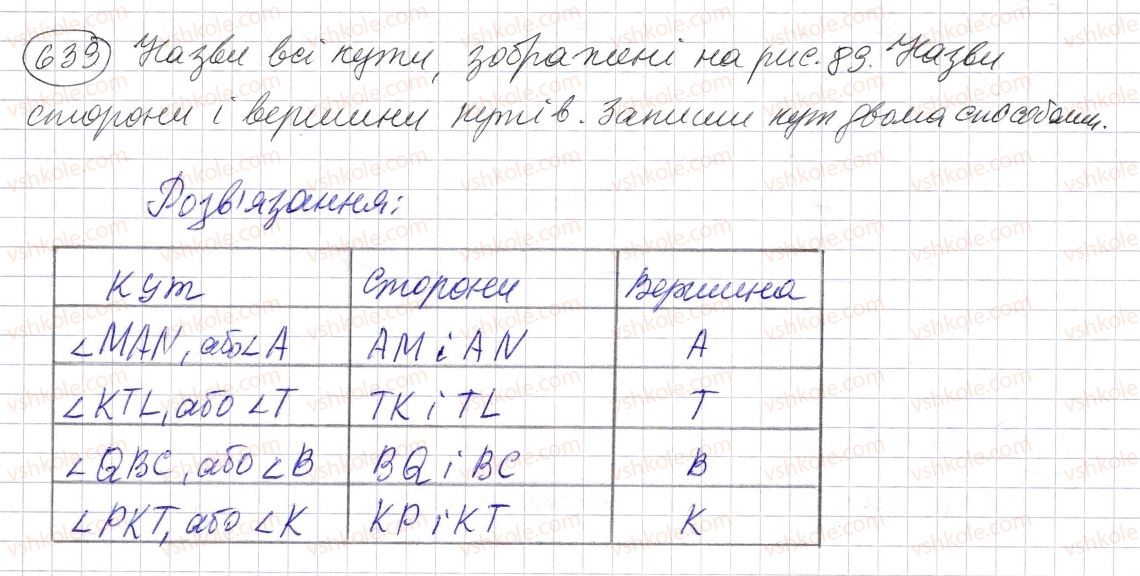 639 Назви всі кути, зображені на рис. 89. Назви
сторони і вершини кутів. Запиши кут двома способами.
Розв'язання:
Кут Сторони Вершина
∠MAN, або ∠A AM і AN A
∠KTL, або ∠T TK і TL T
∠QBC, або ∠B BQ і BC B
∠PKT, або ∠K KP і KT K